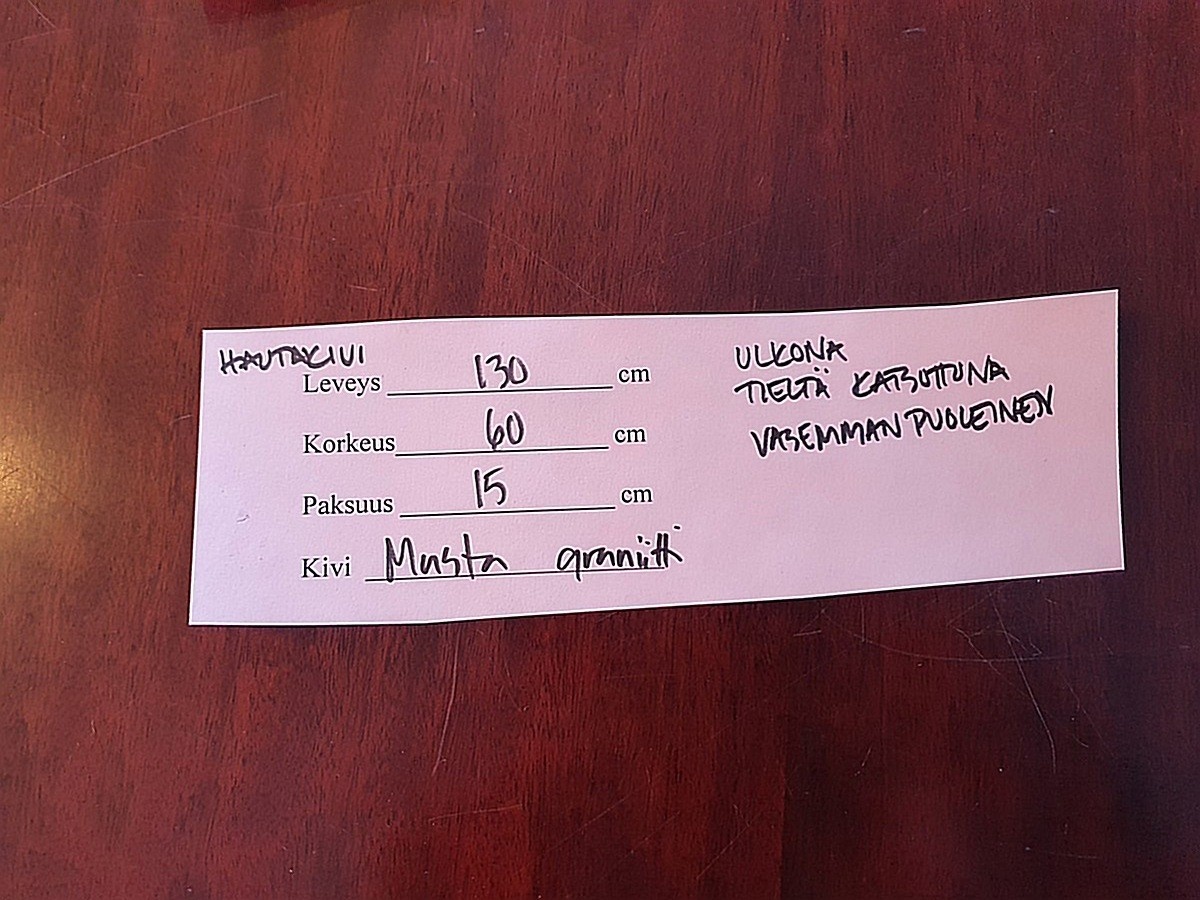 HAUTAKIVI
Leveys 130 cm
Korkeus 60 cm
Paksuus 15 cm
Kivi Musta graniitti
ULKONA
TIELTÄ KATSOTTUNA
VASEMMAN PUOLEINEN